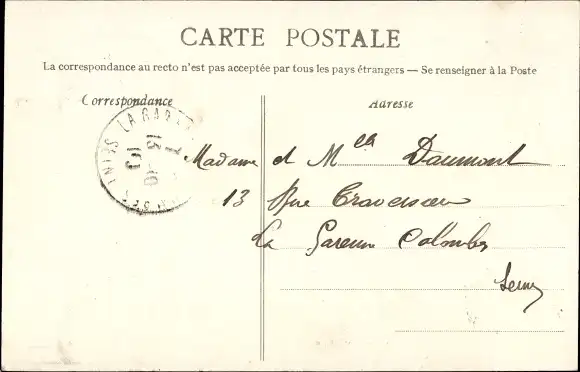 CARTE POSTALE
La correspondance au recto n'est pas acceptée par tous les pays étrangers — Se renseigner à la Poste
Correspondance
Adresse
LA GAR
13
10
SEINE
Madame et Melle Daumont
13 Rue Traversière
La Garenne Colombes
Seine